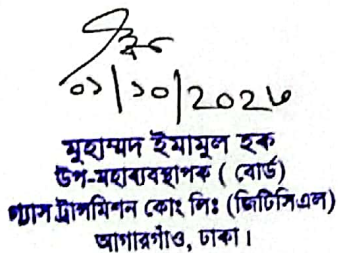 ০১/১০/2026
মুহাম্মদ ইমামুল হক
উপ-মহাব্যবস্থাপক ( বোর্ড)
গ্যাস ট্রান্সমিশন কোং লিঃ (জিটিসিএল)
আগারগাঁও, ঢাকা।